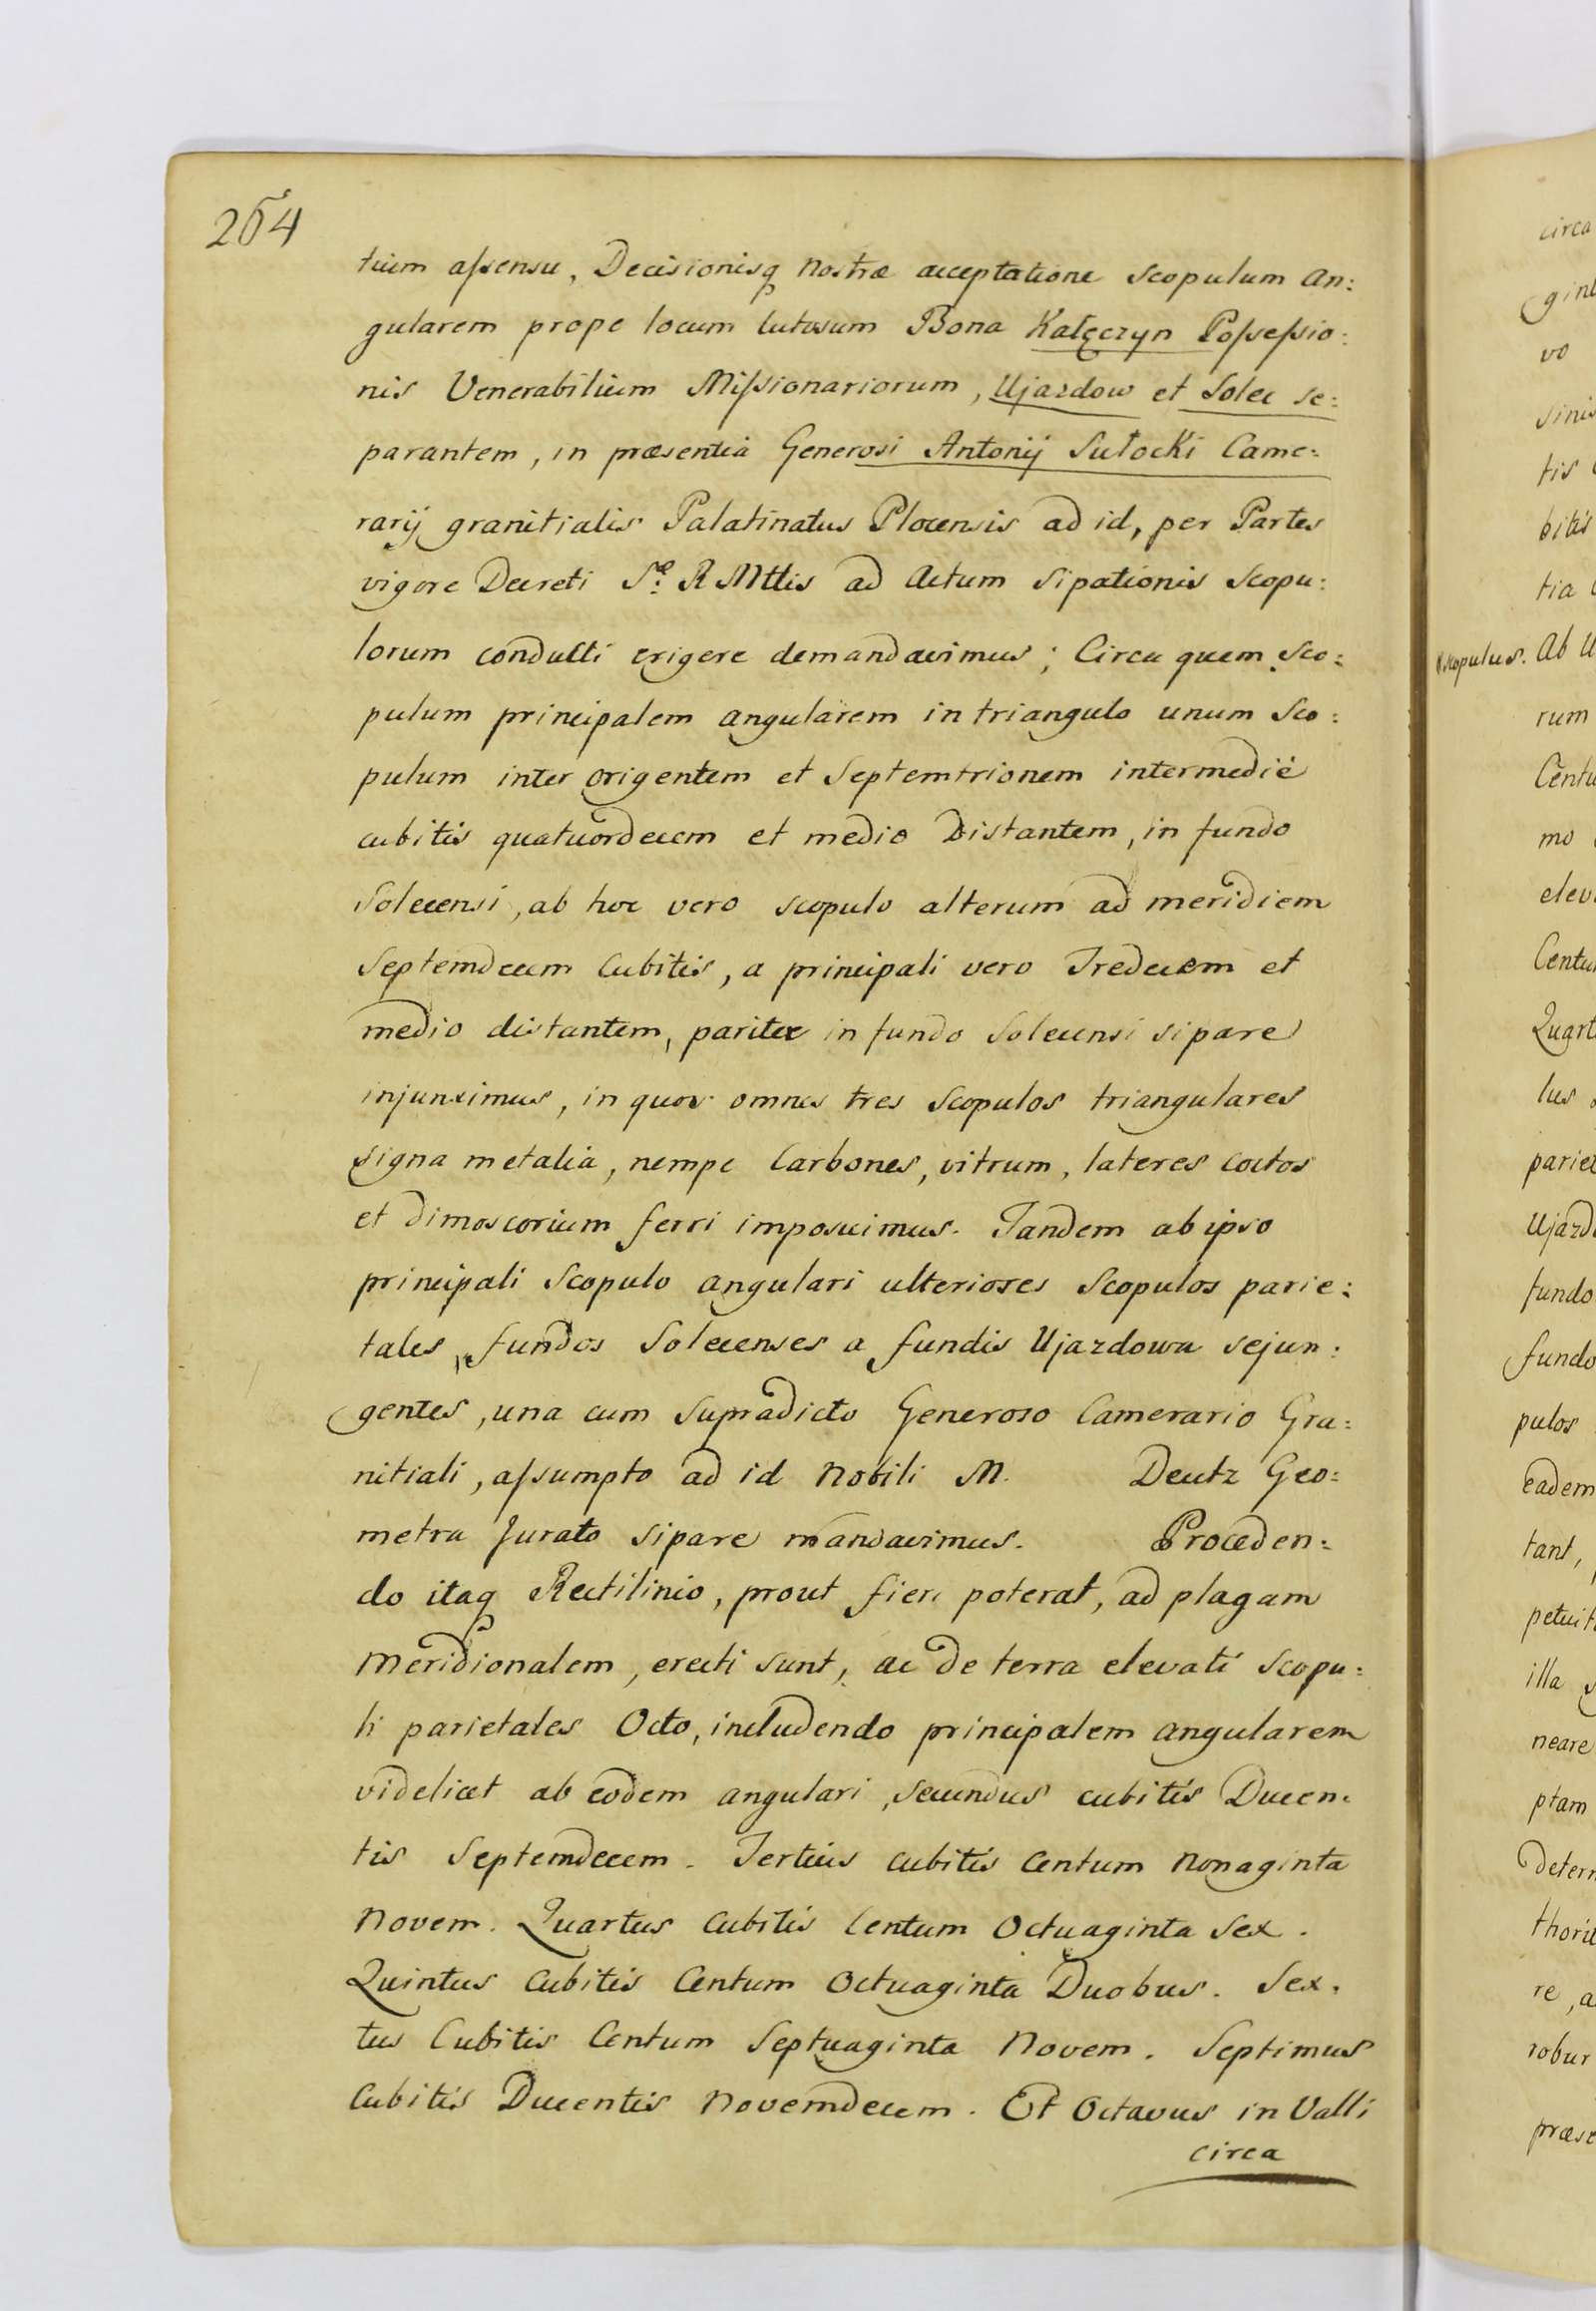 254
tium aſsensu, Decisionisq nostræ acceptatione Scopulum An:
gularem prope locum lutosum Bona Kałęczyn Poſseſsio:
nis Venerabilium Miſsionariorum, Ujazdow et Solec se:
parantem, in præsentia Generosi Antonij Sułocki Came:
rarij granitialis Palatinatus Plocensis ad id, per Partes
vigore Decreti S: R Mttis ad Actum Sipationis Scopu:
lorum conducti erigere demandavimus; Circa quem Sco:
pulum principalem angularem in triangulo unum Sco:
pulum inter origentem et Septemtrionem intermedié
cubitis quatuordecem et medio Distantem, in fundo
Solecensi, ab hoc vero scopulo alterum ad meridiem
Septemdecem Cubitis, a principali vero Tredecem et
medio distantem, pariter in fundo Solecensi sipare
injunximus, in quos omnes tres Scopulos triangulares
signa metalia, nempe Carbones, vitrum, lateres coctos
et dimoscorium ferri imposuimus. Tandem ab ipso
principali Scopulo angulari ulteriores Scopulos parie:
tales, fundos Solecenses a fundis Ujazdowa sejun:
gentes, una cum supradicto Generoso Camerario Gra:
nitiali, aſsumpto ad id Nobili M. Deutz Geo:
metra Jurato sipare mandavimus. Proceden:
do itaq Rectilinio, prout fieri poterat, ad plagam
meridionalem, erecti sunt, ac de terra elevati scopu:
li parietales Octo, includendo principalem angularem
videlicet ab eodem angulari, secundus cubitis Ducen:
tis Septemdecem. Tertius cubitis Centum Nonaginta
Novem. Quartus Cubitis Centum Octuaginta Sex.
Quintus Cubitis Centum Octuaginta Duobus. Sex:
tus Cubitis Centum Septuaginta Novem. Septimus
Cubitis Ducentis Novemdecem. Et Octavus in Valli
circa
circa
gint
vo
sinis
tis
bitis
tia
scopulus. Ab U
rum
Centu
mo
elev
Centu
Quart
lus
pariet
Ujazd
fundo
fundo
pulos
eadem
tant,
petuit
illa
neare
ptam
Deter
thorit
re, a
robur
præse